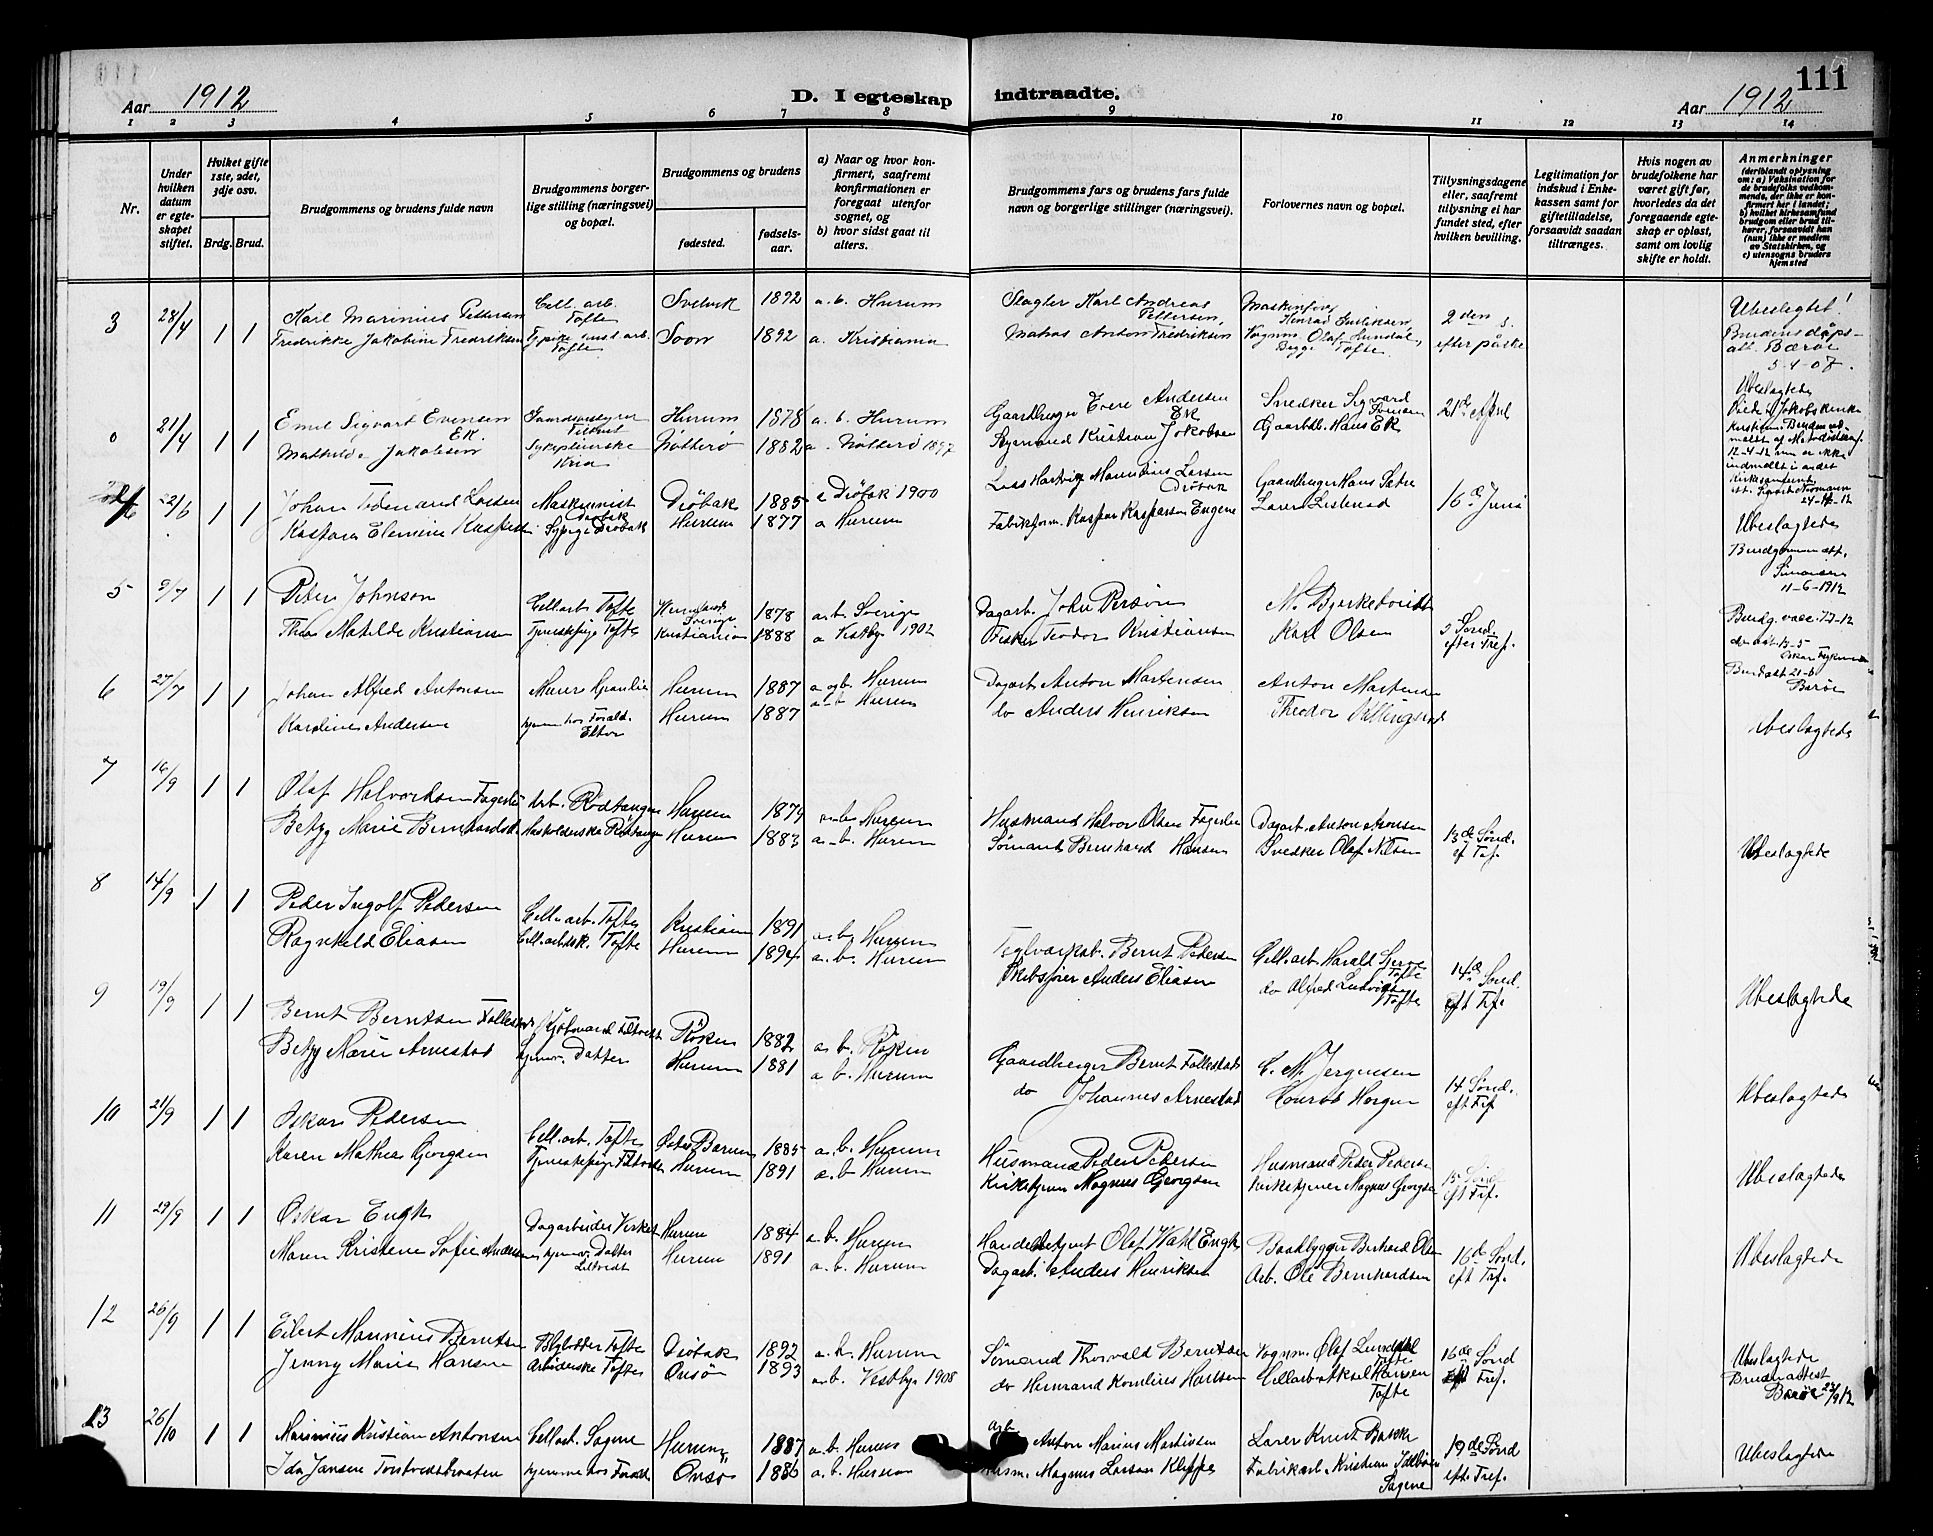 111
Aar 1912
D. I egteskap indtraadte.
Aar 1912
1 2 3 4 5 6 7 8 9 10 11 12 13 14
Nr.
Under hvilken datum er egteskapet stiftet.
Hviket gifte 1ste, 2det, 3dje osv.
Brdg. Brud.
Brudgommens og brudens fulde navn
Brudgommens borgerlige stilling (næringsvei) og bopæl.
Brudgommens og brudens
fødested.
fødselsaar.
a) Naar og hvor konfirmert, saafremt konfirmationen er foregaat utenfor sognet, og
b) hvor sidst gaat til alters.
Brudgommens fars og brudens fars fulde navn og borgerlige stillinger (næringsvei).
Forlovernes navn og bopæl.
Tillysningsdagene eller, saafremt tillysning ei har fundet sted, efter hvilken bevilling.
Legitimation for indskud i Enkekassen samt for giftetilladelse, forsaavidt saadan tiltrænges.
Hvis nogen av brudefolkene har været gift før, hvorledes da det foregaaende egteskap er opløst, samt om lovlig skifte er holdt.
Anmerkninger (deriblandt oplysning om: a) Vaksination for de brudefolks vedkommende, der ikke er konfirmert her i landet; b) hvilket kirkesamfund brudgom eller brud tilhører, forsaavidt han (hun) ikke er medlem av Statskirken, og c) utensogns bruders hjemsted
3 28/4 1 1 Karl Marinius Pettersen Cell. arb. Tofte Svelvik 1892 a. b. Hurum Slagter Karl Andreas Pettersen, Maskinfor. Konrad 2den s. Ubeslegtet!
Fredrikke Jakobine Fredriksen Tofte Soon 1892 a. Kristiania Matros Anton Fredriksen Vognm. Olaf Lundal, Begge Tofte. efter påske Brudens dåpsatt. Barøe 3-4-07.
0 21/4 1 1 Emil Sigvart Evensen Ek. Filtvet Hurum 1878 a. b. Hurum Gaardbruger Evere Andersen Ek Snedker Sigvard 21de April Ubeslagtede
Mathilde Jakobsen Sykepleierske Kria Nøtterø 1882 a. Nøtterø 1897 Styrmand Kristian Jakobsen Gaardb. Hans Ek Viet i Jakobs kirke Kristian. Bruden utmeldt af Metodistkirk. 12-4-12 men er ikke indmeldt i andet Kirkesamfund 24-4-12
22/6 1 1 Johan Ferdinand Larsen Maskinist Drøbak Drøbak 1885 a Drøbak 1900 Lods Hartvig Marentius Larsen Drøbak Gaardbruger Hans Sætre 16de Juni Ubeslagtede
Kaspara Elemine Kaspersen Sypige Drøbak Hurum 1877 a Hurum Fabrikform. Kaspar Kasparsen Engene Lærer Brudgommen att. Simonsen 11-6-1912
5 9/7 1 1 Peter Johnson Cell arb Tofte Sverige 1878 a. b. Sverige Dagarb. John Person N. Bjerketvedt Brudg. vacc.
Thea Matilde Kristiansen Tjenestepige Tofte Kristiania 1888 a Vestby 1902 Fisker Teodor Kristiansen Karl Olsen 5 Sønd. efter Tref. Brud att 21-6 Barøe
6 27/7 1 1 Johan Alfred Antonsen Murer Hurum 1887 a og b. Hurum Dagarb. Anton Martensen Anton Martensen
Karoline Andersen hjemme hos Foreld. Hurum 1887 a b Hurum do Anders Henriksen Theodor Ubeslagtede
7 16/9 1 1 Olaf Halvorsen Fagerli Arb. Rødtangen Hurum 1879 a. b. Hurum Husmand Halvor Olsen Fagerlie Dagarb. Anton Aronsen 13de Sønd.
Betzy Marie Bernhardsd. Husholderske Rødtangen Hurum 1883 a. b. Hurum Sømand Bernhard Hansen Snedker Olaf Nilsen ef Tref. Ubeslagtede
8 14/9 1 1 Peder Ingolf Pedersen Cell. arb. Tofte Kristiania 1891 a. b. Hurum Teglverksb. Bernt Pedersen Cell. arb Harald Tofte 14de Sønd.
Ragnhild Eliasen Cell. arbdsk. Tofte Hurum 1894 a. b. Hurum Skibsfører Anders Eliasen do Alfred Ludvigsen Tofte eft Tref. Ubeslagtede
9 19/9 1 1 Bernt Berntsen Follestad Kjøbmand Filtvedt Røken 1882 a. b. Røken Gaardbruger Bernt Follestad C. M. Jørgensen 14 Sønd.
Betzy Marie Arnestad hjemv. Datter Hurum 1881 a b. Hurum do Johannes Arnestad Konrad Horgen eft Tref Ubeslagtede
10 21/9 1 1 Oskar Pedersen Cell. arb. Tofte Østre Bærum 1885 a. b. Hurum Husmand Peder Pedersen Husmand Peder Pedersen 15 Sønd
Karen Mathea Georgsen Tjenestepige Filtvedt Hurum 1891 a. b Hurum Kirketjener Magnus Georgsen Kirketjener Magnus Georgsen eft Tref. Ubeslagtede
11 29/9 1 1 Oskar Engh Dagarbeider Hurum 1884 a. b. Hurum Handelsbetjent Olaf Wahl Engh Baatbygger Berhard Olsen 16de Sønd.
Maren Kristene Sofie Andersen hjemv. Datter Hurum 1891 a. b. Hurum Dagarb. Anders Henriksen Arb. Ole Bernhardsen eft Tref. Ubeslagtede
12 26/9 1 1 Eilert Marinius Berntsen Tofte Drøbak 1892 a. b. Hurum Sømand Thorvald Berntsen Vognm. Olaf Lunddal Tofte 16de Sønd Ubeslagtede
Jenny Marie Hansen Arbiderske Tofte Onsø 1893 a. b. Vestby 1908 do Hermand Kornlius Hansen Cellarb Aksel Hansen Tofte eft Tref. Brudens attest Barøe 23/9 12
13 26/10 1 1 Marinius Kristian Antonsen Cellarb. Sagene Hurum 1887 a. b. Hurum Arb. Anton Marius Martinsen Lærer Knut Bakke 19de Sønd
Ida Jansen hjemme hos Foreld. Onsø 1886 a. b. Hurum Husm. Magnus Larsen Klippe Fabrikarb. Kristian Sagene eft. Tref. Ubeslagtede